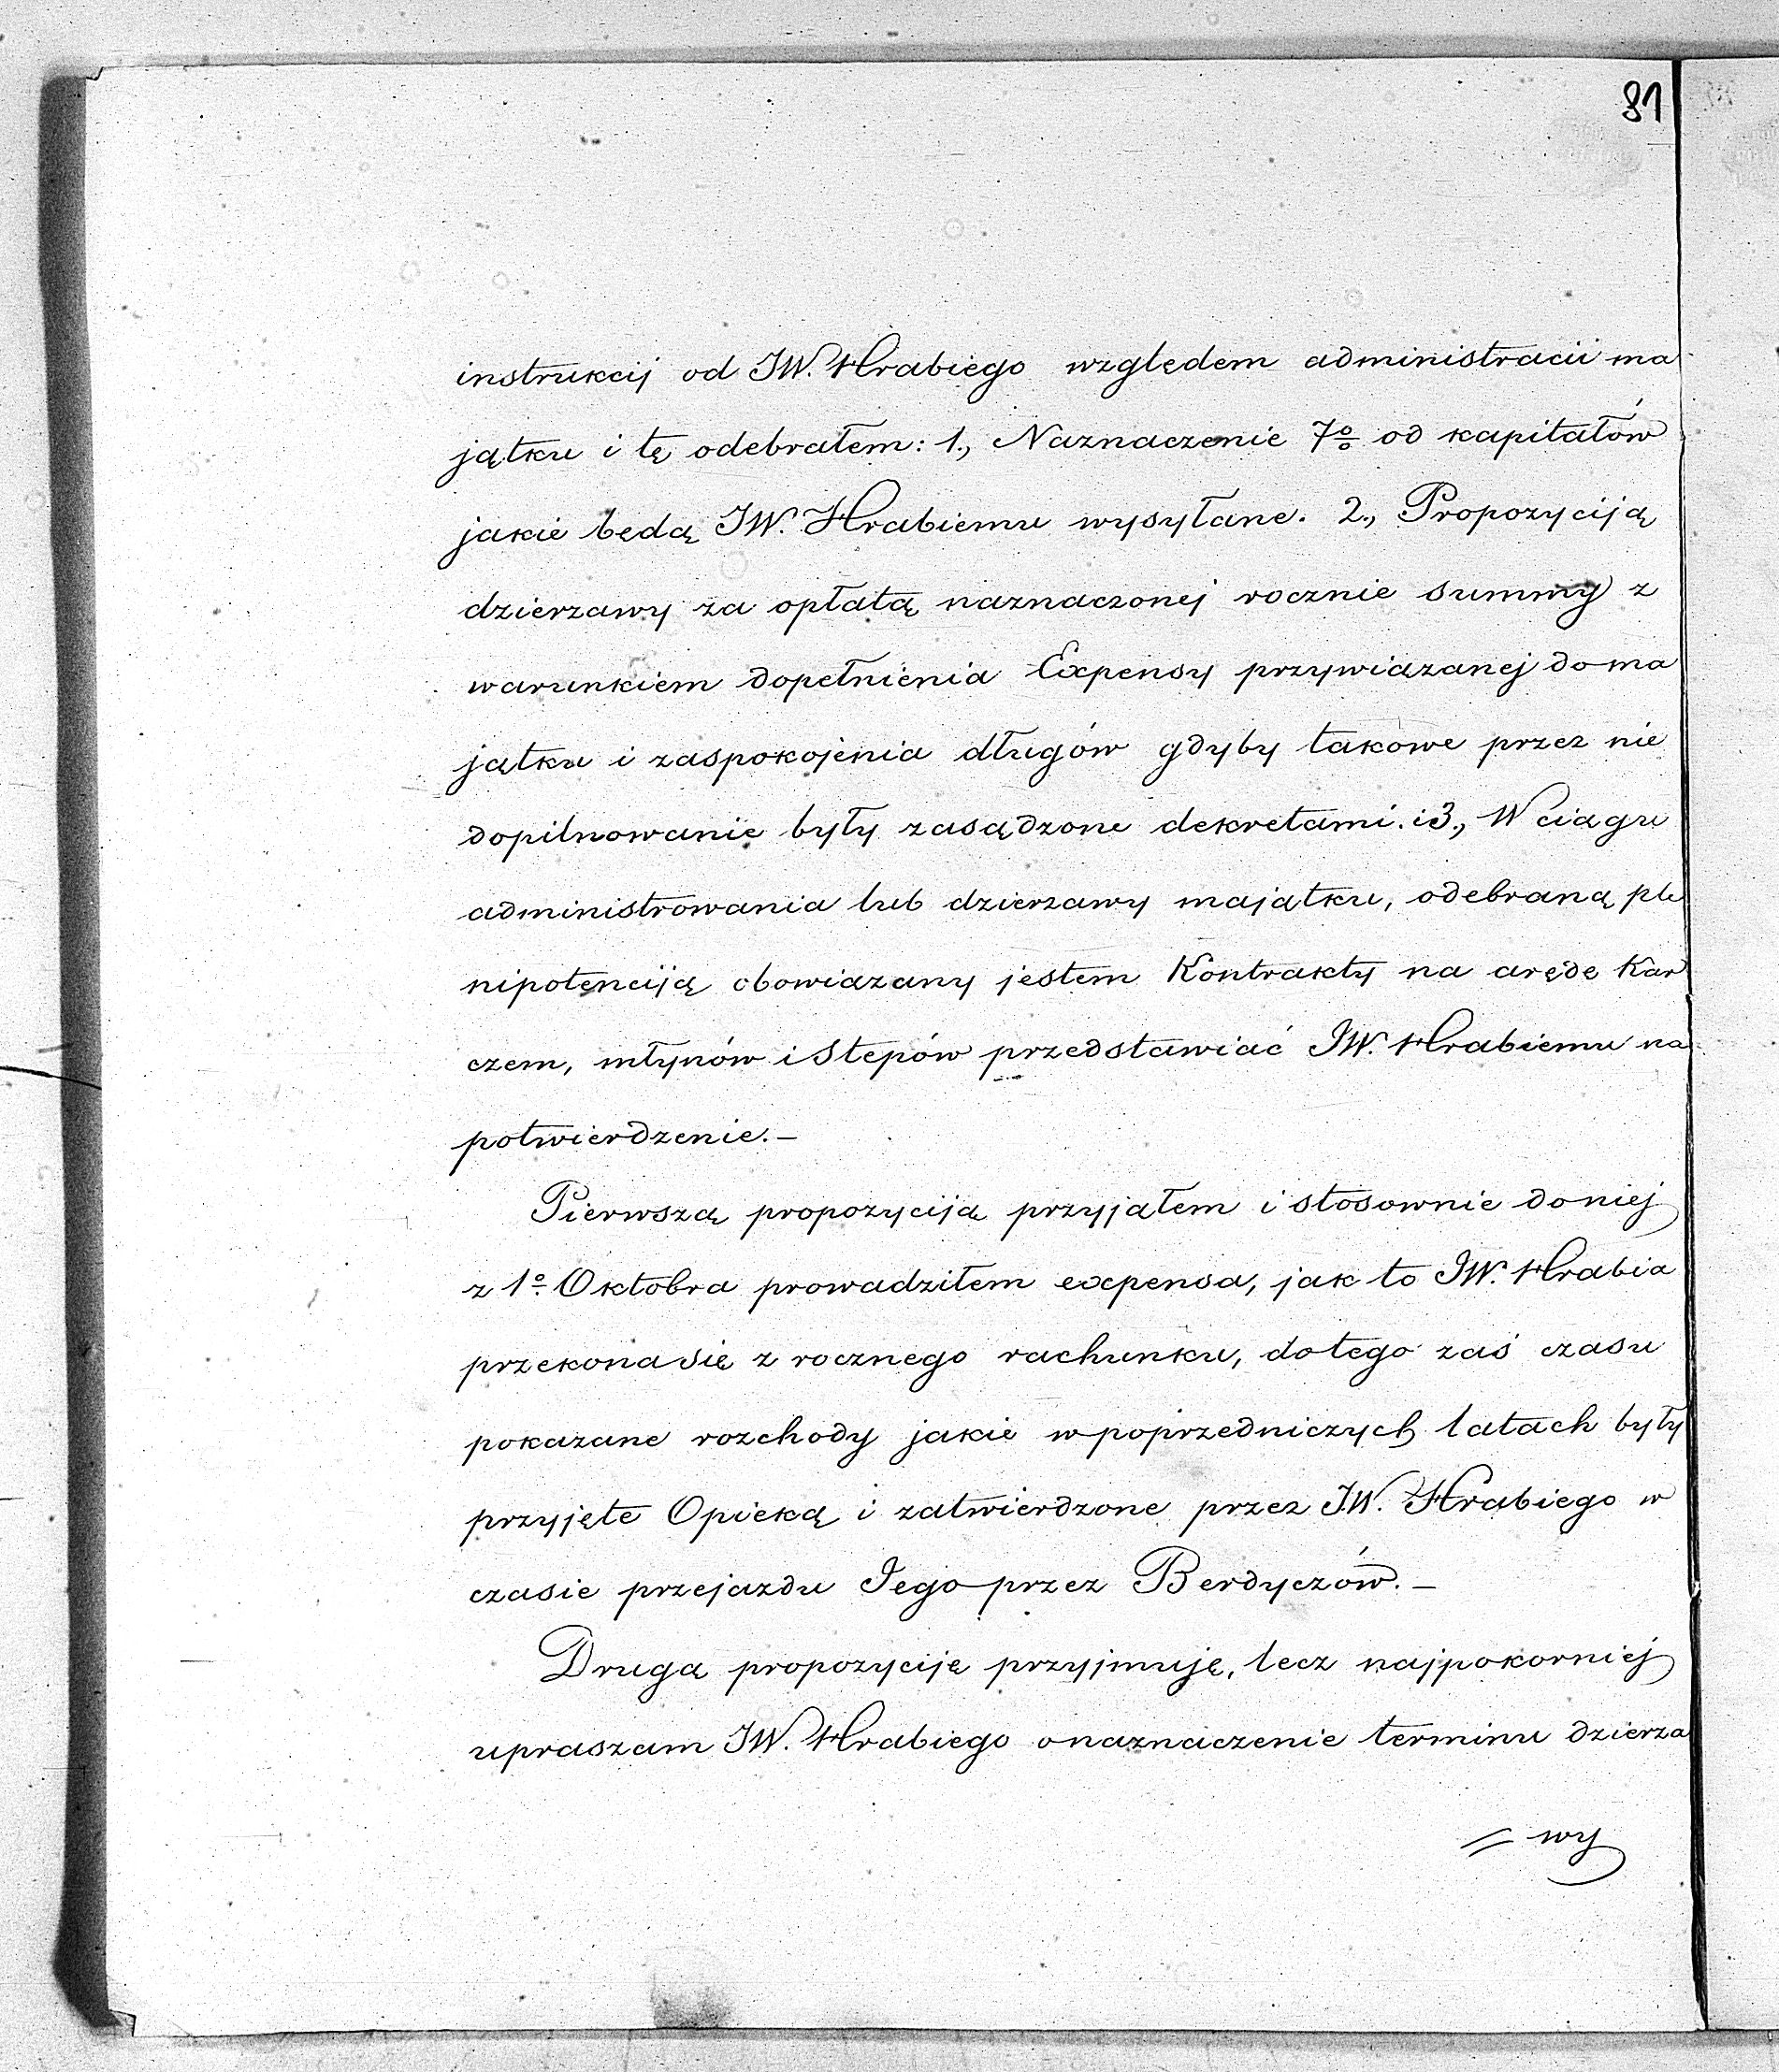 81
instrukcij od JW. Hrabiego względem administracii ma
jątku i tę odebrałem: 1., Naznaczenie 7% od kapitałów
jakie będą JW. Hrabiemu wysyłane. 2., Propozyciją
dzierzawy za opłatą naznaczonej rocznie summy z
warunkiem dopełnienia Expensy przywiązanej do ma
jątku i zaspokojenia długów gdyby takowe przez nie
dopilnowanie były zasądzone dekretami. i 3., W ciągu
administrowania lub dzierzawy majątku, odebraną ple
nipotenciją obowiązany jestem Kontrakty na arędę Kar
czem, młynów i Stępów przedstawiać JW. Hrabiemu na
potwierdzenie.—
Pierwszą propozyciją przyjąłem i stosownie do niej
z 1o Oktobra prowadziłem expensa, jak to JW. Hrabia
przekona się z rocznego rachunku, do tego zaś czasu
pokazane rozchody jakie w poprzedniczych latach były
przyjęte Opieką i zatwierdzone przez JW. Hrabiego w
czasie przejazdu Jego przez Berdyczów.—
Drugą propozyciję przyjmuję, lecz najpokorniej
upraszam JW. Hrabiego o naznaczenie terminu dzierza
= wy